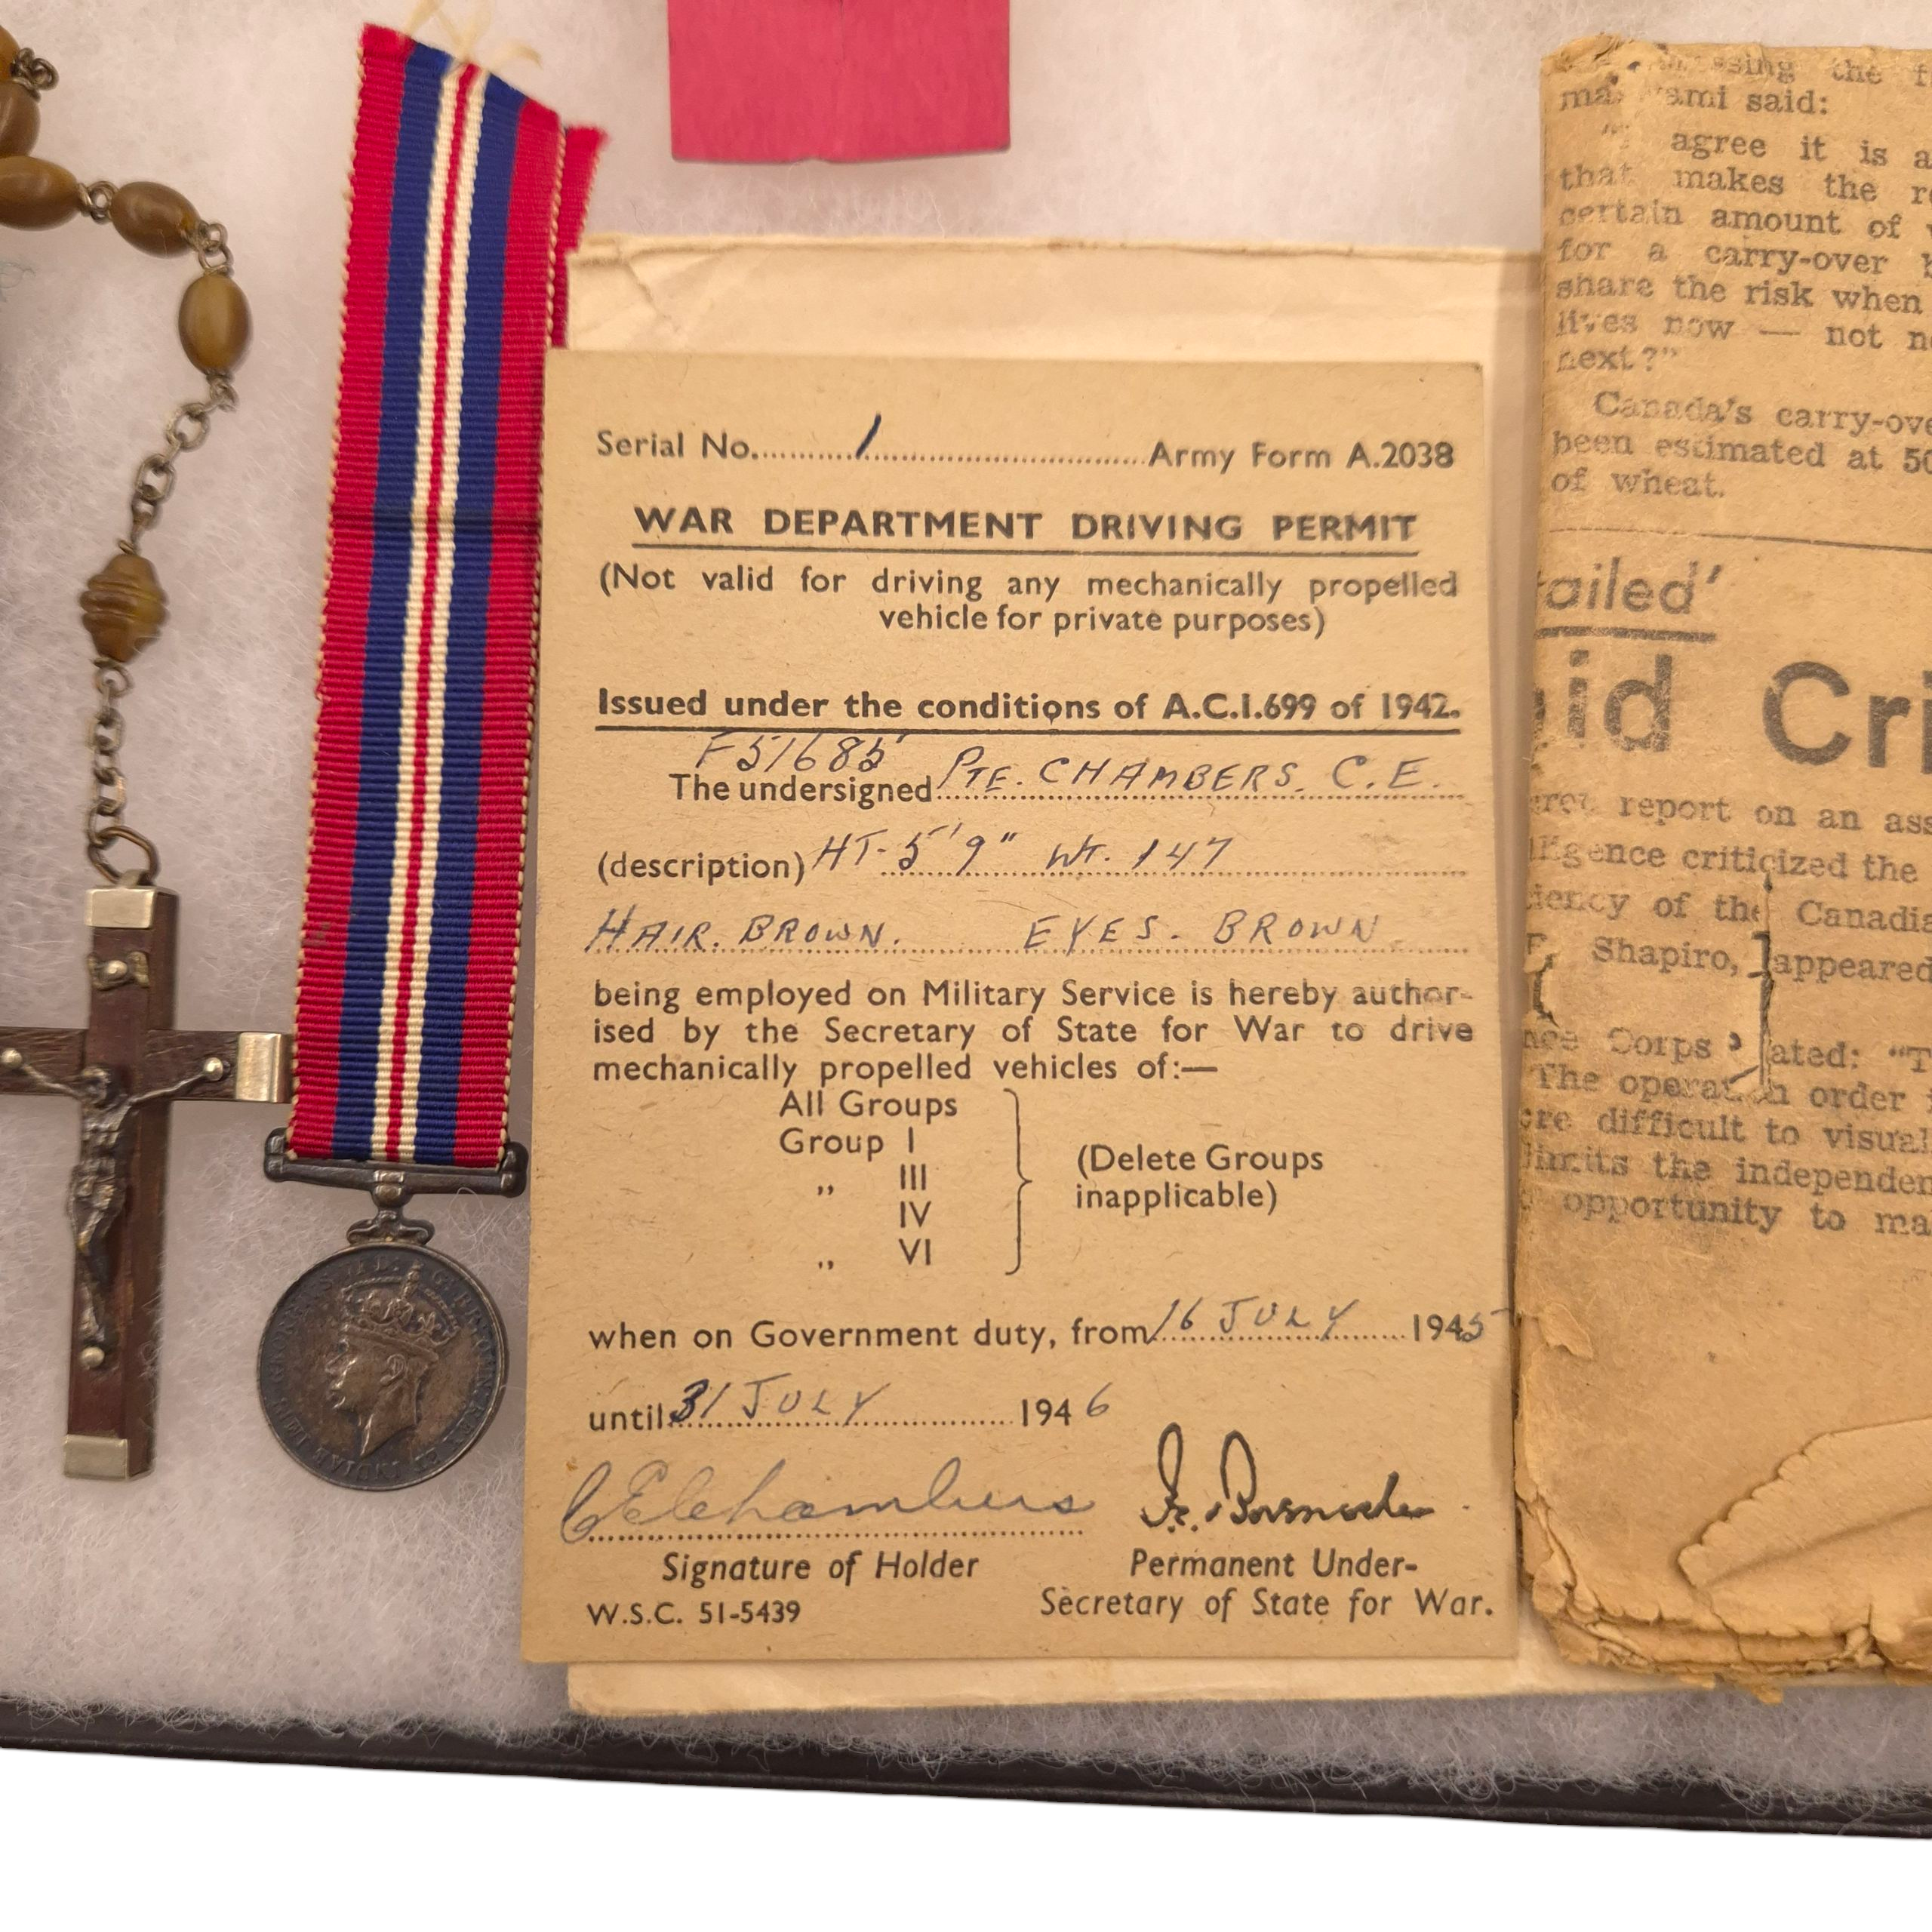 Serial No. 1 Army Form A.2038
WAR DEPARTMENT DRIVING PERMIT
(Not valid for driving any mechanically propelled
vehicle for private purposes)
Issued under the conditions of A.C.I.699 of 1942.
F51685
The undersigned PTE. CHAMBERS. C.E.
(description) HT- 5'9" WT. 147
HAIR. BROWN. EYES. BROWN.
being employed on Military Service is hereby author-
ised by the Secretary of State for War to drive
mechanically propelled vehicles of:—
All Groups
Group I
„ III
IV
„ VI
(Delete Groups
inapplicable)
when on Government duty, from 16 JULY 1945
until 31 JULY 1946
C E Chambers
Signature of Holder
W.S.C. 51-5439
Permanent Under-
Secretary of State for War.
the
said:
agree it is
that makes the
certain amount of
for a carry-over
share the risk when
lives now — not
next?"
Canada's carry-over
been estimated at
of wheat.
Cri
report on an
criticized the
of the
Shapiro, appeared
Corps
The order
difficult to
the
opportunity to